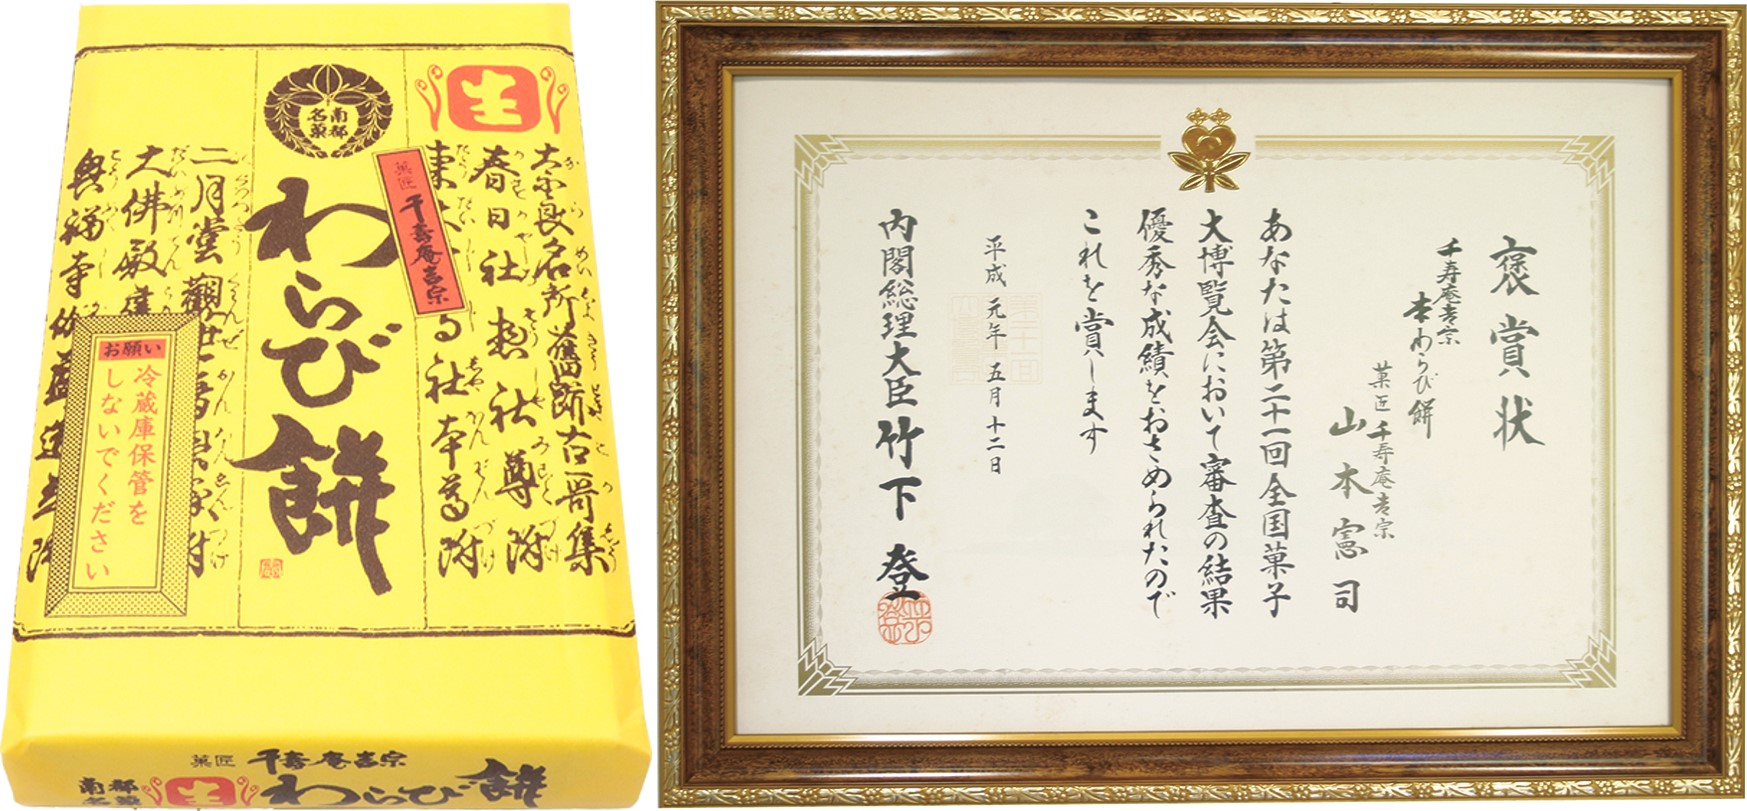 生
南都
名菓
わらび餅
菓匠 千寿庵吉宗
大な良名所旧跡古哥集
春日社惣社尊附
社本尊附
二月堂観世音
大佛殿
興福寺伽藍
お願い
冷蔵庫保管を
しないでください
菓匠 千寿庵吉宗
南都
名菓
生
わらび餅
褒賞状
千寿庵吉宗
本わらび餅
菓匠 千寿庵吉宗
山本憲司
あなたは第二十一回全国菓子
大博覧会において審査の結果
優秀な成績をおさめられたので
これを賞します
平成元年五月十二日
内閣総理大臣 竹下登